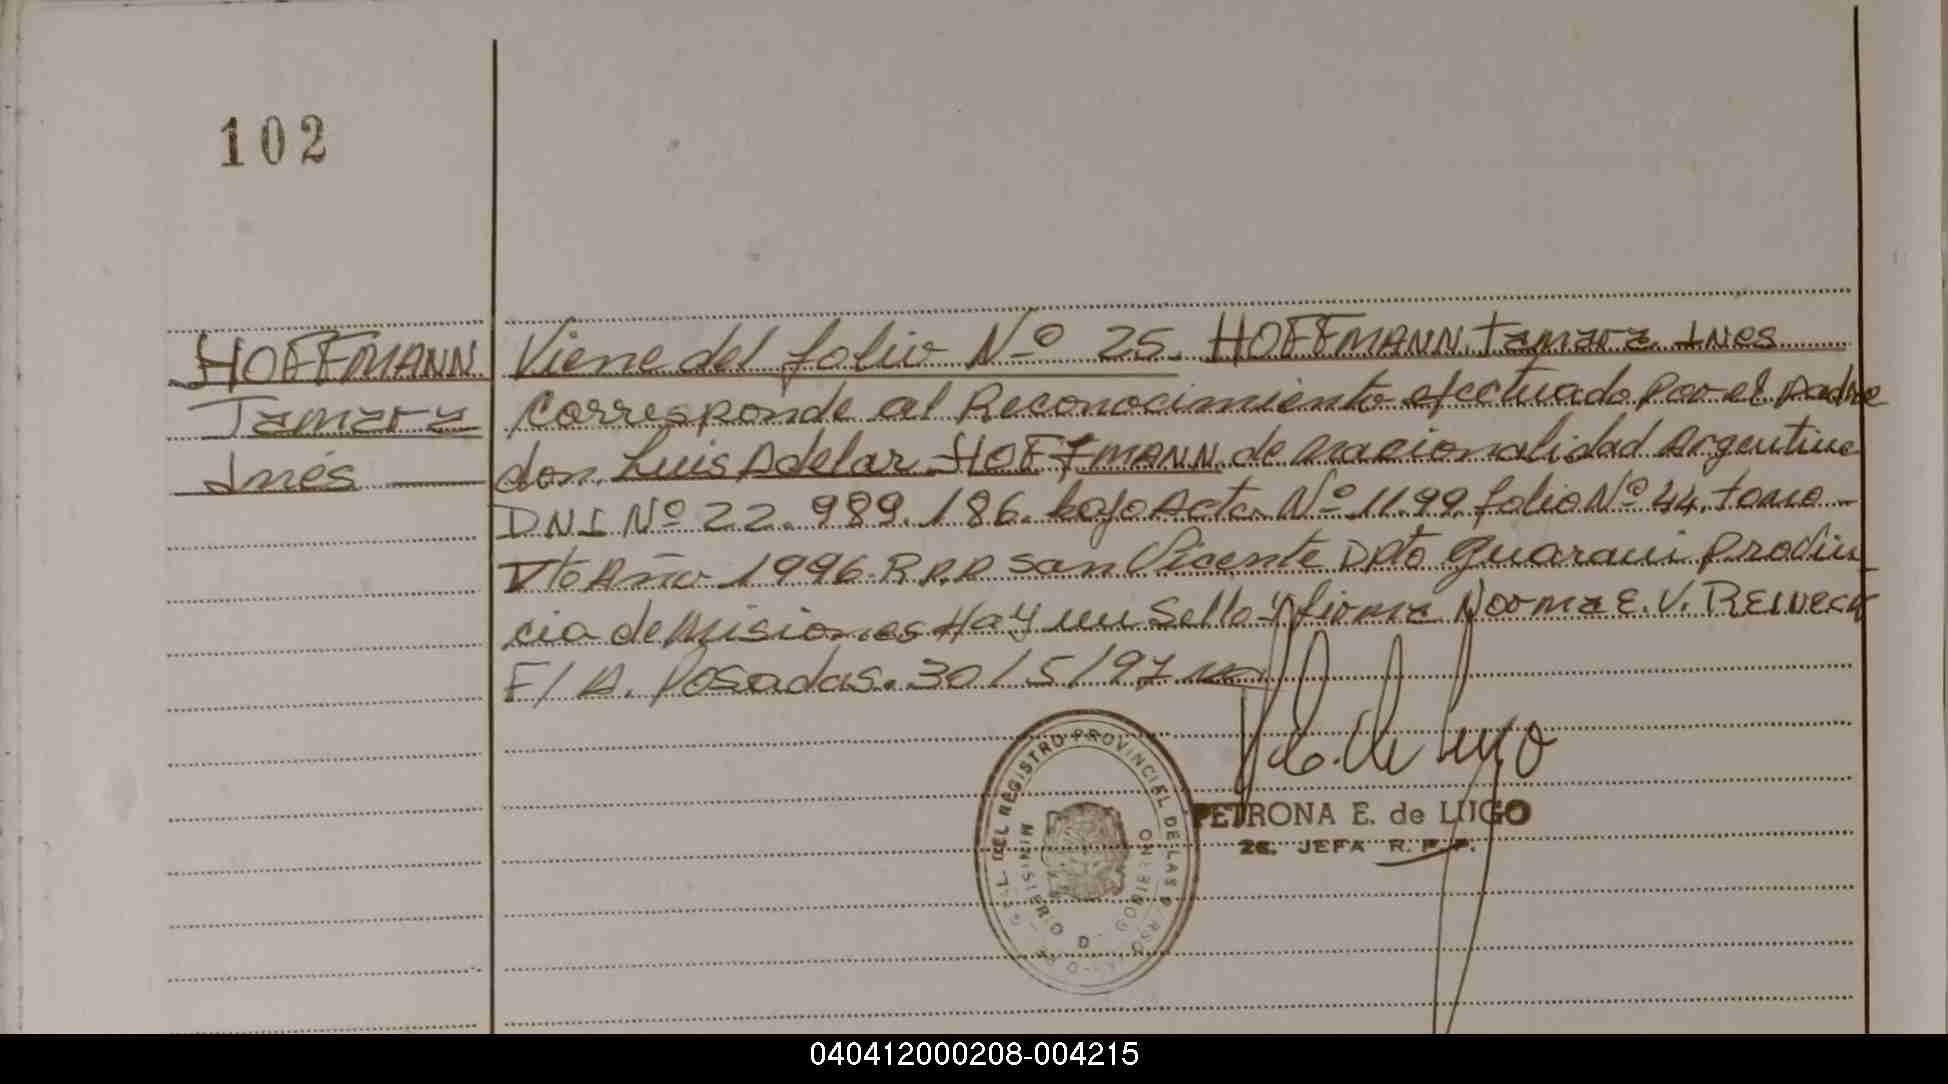 102
HOFFMANN
Tamara
Inés
Viene del folio Nº 25. HOFFMANN, Tamara Ines
Corresponde al Reconocimiento efectuado por el padre
don Luis Adelar HOFFMANN de nacionalidad Argentina
DNI Nº 22.989.186. bajo Acta Nº 1199 folio Nº 44, tomo
Vto Año 1996. R.P.P San Vicente Dpto Guarani Provin
cia de Misiones Hay un Sello y firma Norma E. V.
F/A. Posadas. 30/5/97
P. E. de Lugo
PETRONA E. de LUGO
2a. JEFA R. P. P.
DEL REGISTRO PROVINCIAL DE LAS
MINISTERIO D GOBIERNO
040412000208-004215